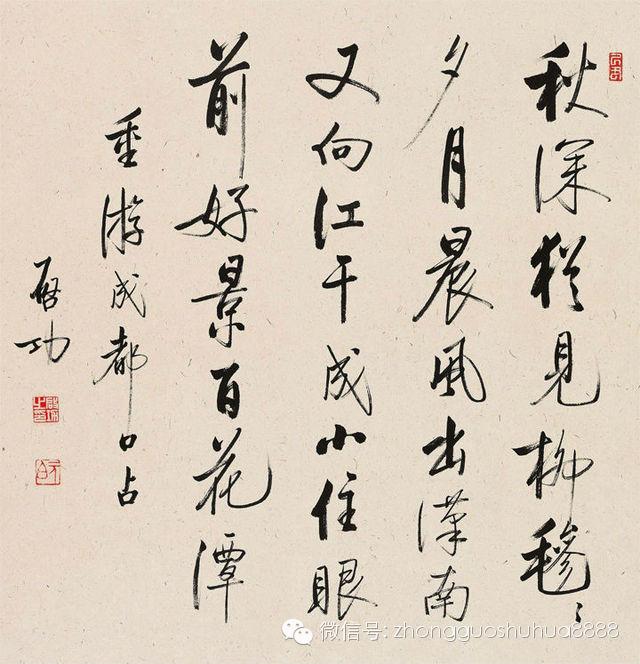 秋深猶見柳毿〻
夕月晨風出漢南
又向江干成小住眼
前好景百花潭
重游成都口占
啟功
微信号: zhongguoshuhua8888